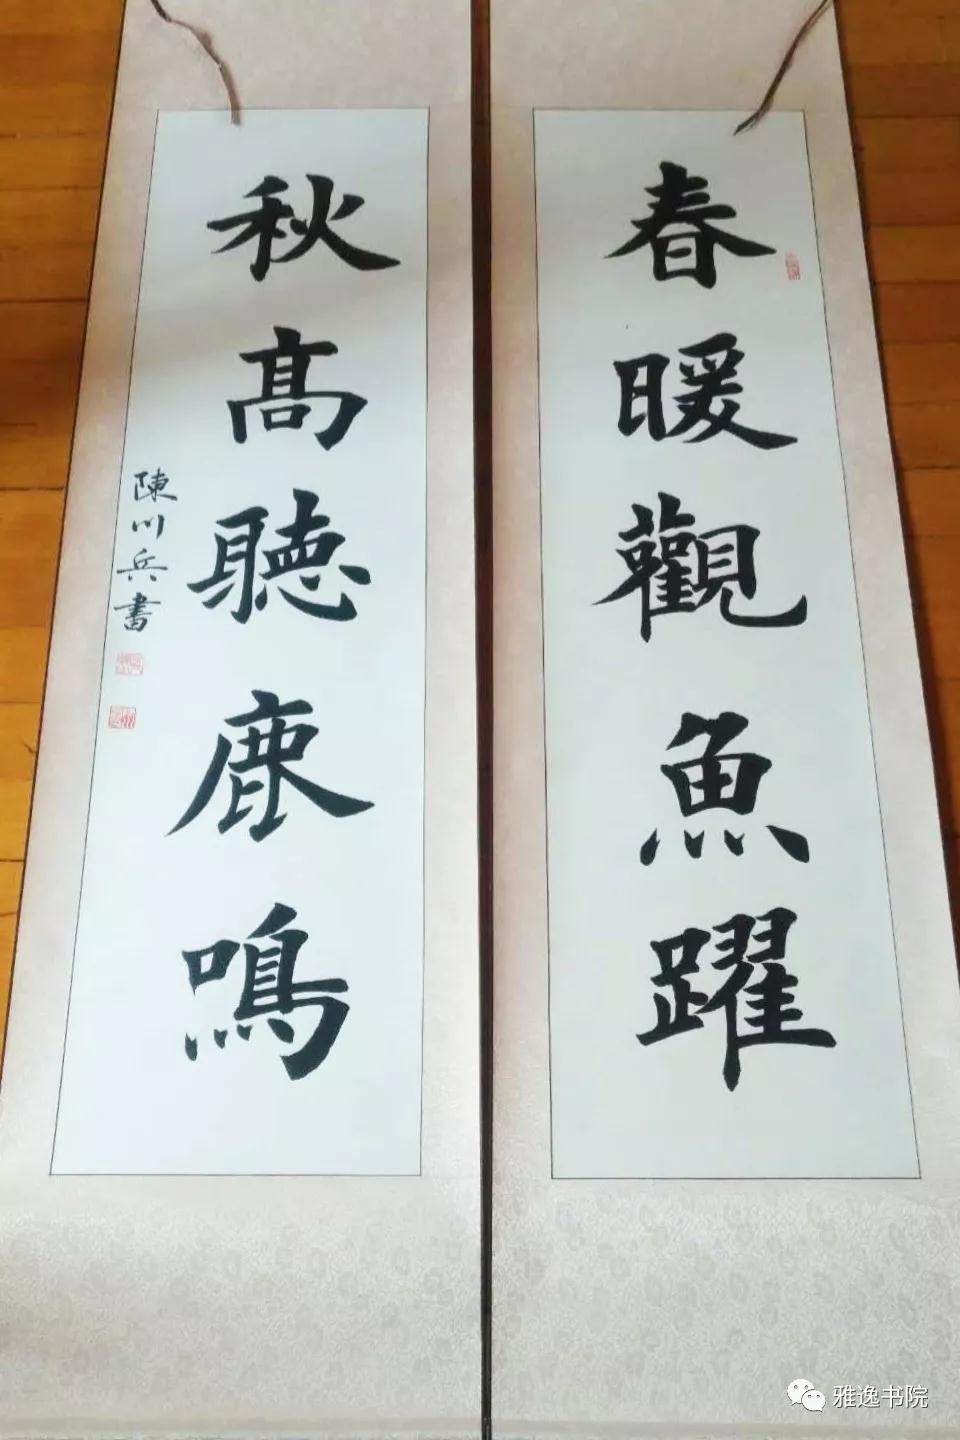 春暖觀魚躍
秋高聽鹿鳴
陳川兵書
雅逸书院